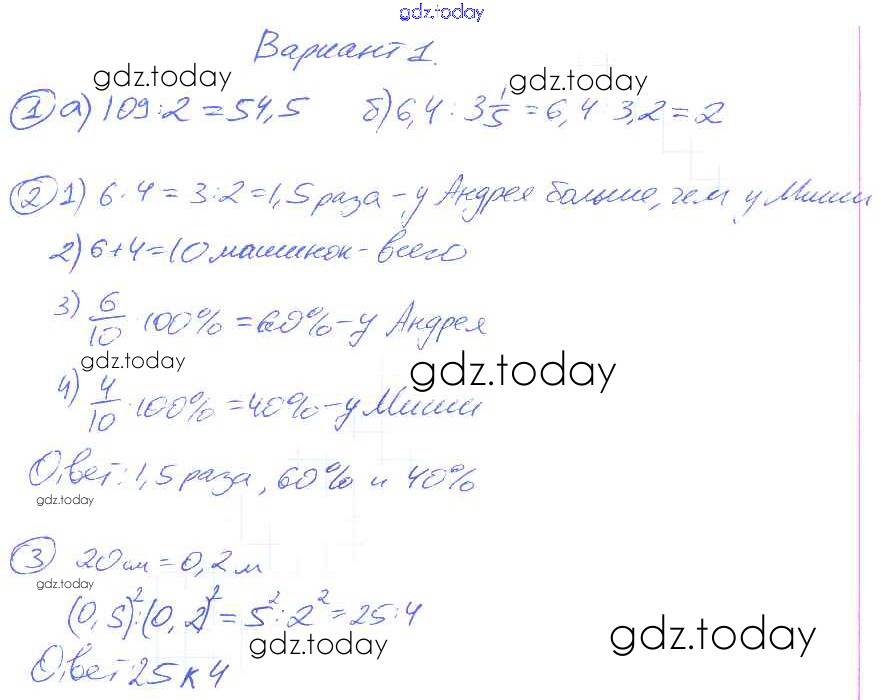 gdz.today
Вариант 1.
gdz.today gdz.today
① а) 109:2 = 54,5 б) 6,4 : 3 1/5 = 6,4 : 3,2 = 2
② 1) 6 : 4 = 3:2 = 1,5 раза - у Андрея больше, чем у Миши
2) 6+4=10 машинок - всего
3) 6/10 · 100% = 60% - у Андрея
gdz.today gdz.today
4) 4/10 · 100% = 40% - у Миши
Ответ: 1,5 раза, 60% и 40%
gdz.today
③ 20 см = 0,2 м
gdz.today
(0,5)²:(0,2)² = 5²:2² = 25:4
gdz.today gdz.today
Ответ 25 к 4